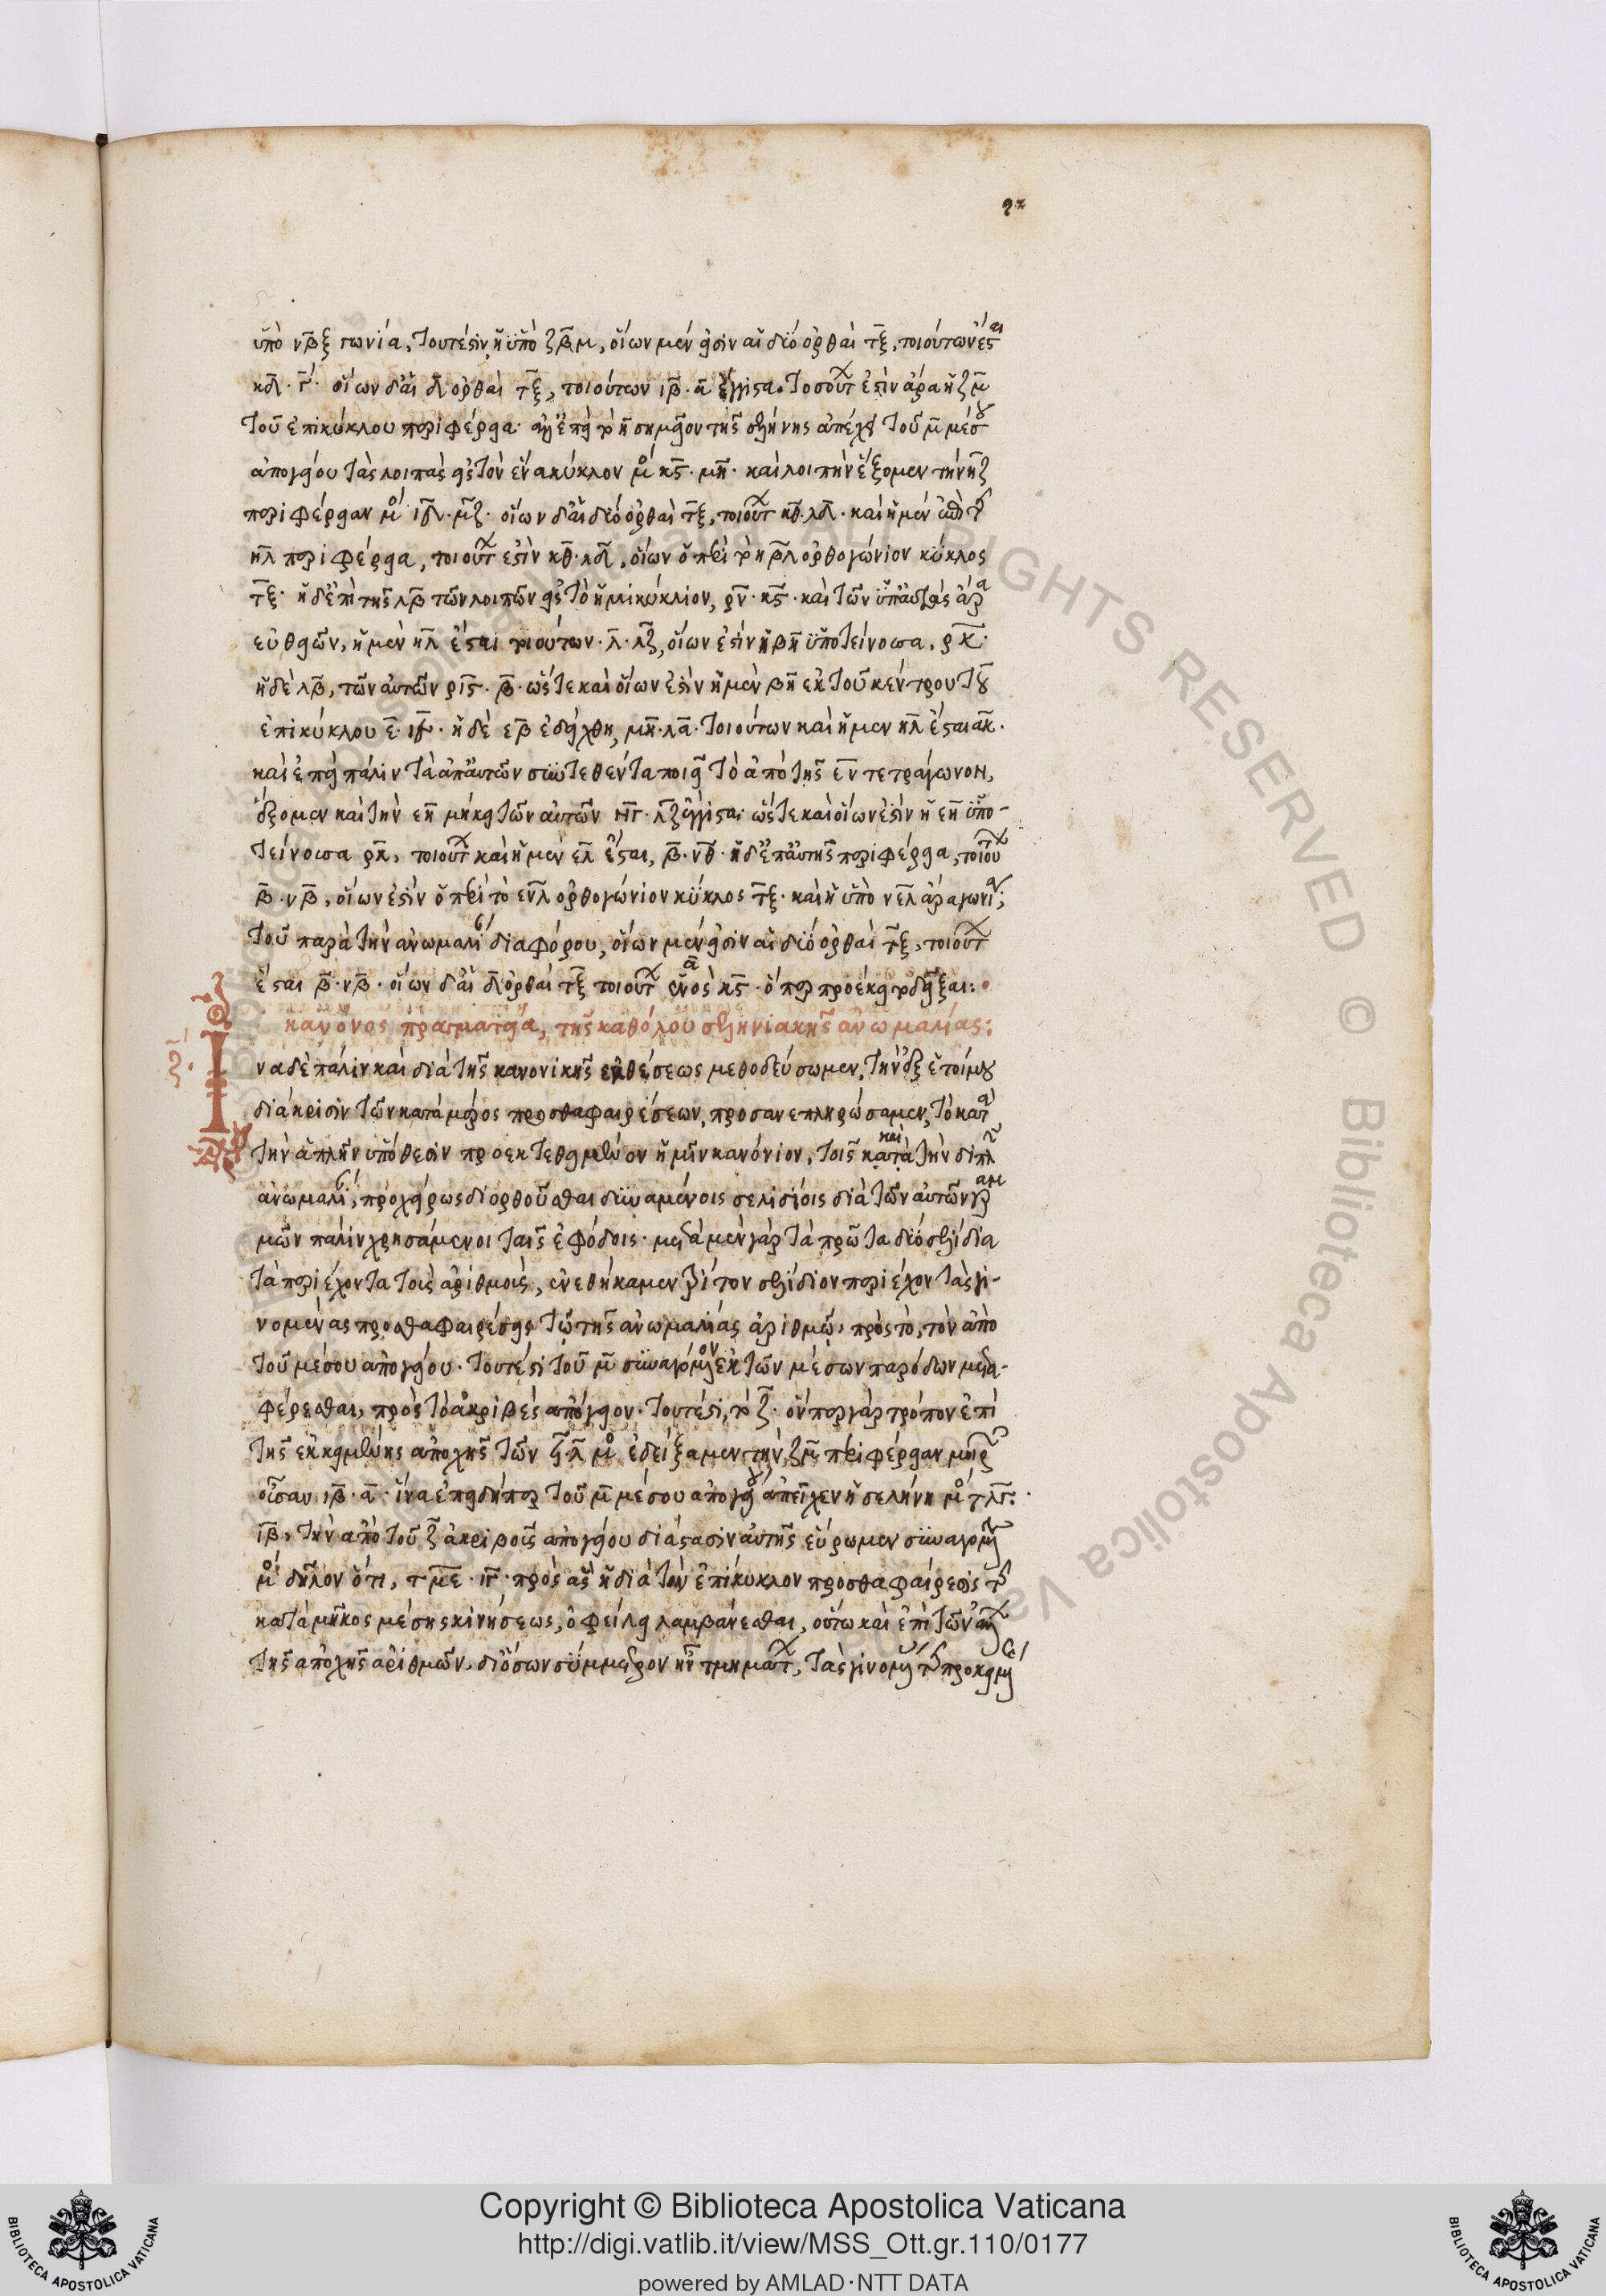 ὑπὸ ν̅β̅ξ̅ γωνία, τουτέστιν ἡ ὑπὸ ζ̅β̅μ̅, οἵων μέν εἰσιν αἱ δύο ὀρθαὶ τ̅ξ̅, τοιούτων ἐστ
κ̅δ̅. γ̅. οἵων δ' αἱ δ̅ ὀρθαὶ τ̅ξ̅, τοιούτων ι̅β̅. α̅ ἔγγιστα. τοσούτ ἐστὶν ἄρα ἡ ζ̅μ̅
τοῦ ἐπικύκλου περιφέρεια. ἀλλ' ἐπεὶ τὸ η̅ σημεῖον τῆς σελήνης ἀπέχει τοῦ μ̅ μέσου
ἀπογείου τὰς λοιπὰς εἰς τὸν ἕνα κύκλον μο κ̅ς̅. μ̅η̅. καὶ λοιπὴν ἕξομεν τὴν η̅ζ̅
περιφέρειαν μο ι̅δ̅. μ̅ζ̅. οἵων δ' αἱ δύο ὀρθαὶ τ̅ξ̅, τοιούτ κ̅θ̅. λ̅δ̅. καὶ ἡ μὲν ἐπὶ τῆς
η̅λ̅ περιφέρεια, τοιούτ ἐστὶν κ̅θ̅. λ̅δ̅, οἵων ὁ περὶ τὸ η̅β̅λ̅ ὀρθογώνιον κύκλος
τ̅ξ̅. ἡ δ' ἐπὶ τῆς λ̅β̅ τῶν λοιπῶν εἰς τὸ ἡμικύκλιον, ρ̅ν̅. κ̅ς̅. καὶ τῶν ὑπ' αὐτὰς ἄρα
εὐθειῶν, ἡ μὲν η̅λ̅ ἔσται τοιούτων. λ̅. λ̅ζ̅, οἵων ἐστὶν ἡ β̅η̅ ὑποτείνουσα, ρ̅κ̅.
ἡ δὲ λ̅β̅, τῶν αὐτῶν ρ̅ι̅ς̅. β̅. ὥστε καὶ οἵων ἐστὶν ἡ μὲν β̅η̅ ἐκ τοῦ κέντρου τοῦ
ἐπικύκλου ε̅. ι̅ε̅. ἡ δὲ ε̅β̅ ἐδείχθη, μ̅η̅. λ̅α̅. τοιούτων καὶ ἡ μὲν η̅λ̅ ἔσται α̅ κ̅.
καὶ ἐπεὶ πάλιν τὰ ἀπ' αὐτῶν συντεθέντα ποιεῖ τὸ ἀπὸ τῆς ε̅ν̅ τετράγωνον,
ἕξομεν καὶ τὴν ε̅η̅ μήκει τῶν αὐτῶν ν̅γ̅. λ̅ζ̅ ἔγγιστα. ὥστε καὶ οἵων ἐστὶν ἡ ε̅η̅ ὑπο-
τείνουσα ρ̅κ̅, τοιούτ καὶ ἡ μὲν ε̅λ̅ ἔσται, β̅. ν̅θ̅. ἡ δ' ἐπ' αὐτῆς περιφέρεια, τοιού
β̅. ν̅β̅, οἵων ἐστὶν ὁ περὶ τὸ ε̅ν̅λ̅ ὀρθογώνιον κύκλος τ̅ξ̅. καὶ ἡ ὑπὸ ν̅ε̅λ̅ ἄρα γωνία,
τοῦ παρὰ τὴν ἀνωμαλί διαφόρου, οἵων μέν εἰσιν αἱ δύο ὀρθαὶ τ̅ξ̅, τοιούτ
ἔσται β̅. ν̅β̅. οἵων δ' αἱ δ̅ ὀρθαὶ τ̅ξ̅ τοιούτ α̅ ἑνὸς κ̅ς̅. ὅπερ προέκειτο δεῖξαι:
κανόνος πραγματεία, τῆς καθόλου σεληνιακῆς ἀνωμαλίας:
Ἵνα δὲ πάλιν καὶ διὰ τῆς κανονικῆς ἐκθέσεως μεθοδεύσωμεν, τὴν ἐξ ἑτοίμου
διάκρισιν τῶν κατὰ μέρος προσθαφαιρέσεων, προσανεπληρώσαμεν, τὸ κατ
τὴν ἁπλῆν ὑπόθεσιν προεκτεθειμένον ἡμῖν κανόνιον, τοῖς καὶ κατὰ τὴν διπλ
ἀνωμαλί, προχείρως διορθοῦσθαι δυναμένοις σελιδίοις διὰ τῶν αὐτῶν γραμ
μῶν πάλιν χρησάμενοι ταῖς ἐφόδοις. μετὰ μὲν γὰρ τὰ πρῶτα δύο σελίδια
τὰ περιέχοντα τοὺς ἀριθμοὺς, ἐνεθήκαμεν τρίτον σελίδιον περιέχον τὰς γι-
νομένας προσθαφαιρέσεις τῷ τῆς ἀνωμαλίας ἀριθμῷ, πρὸς τὸ, τὸν ἀπὸ
τοῦ μέσου ἀπογείου. τουτέστι τοῦ μ̅ συναγόμενον ἐκ τῶν μέσων παρόδων μετα-
φέρεσθαι, πρὸς τὸ ἀκριβὲς ἀπόγειον. τουτέστι, τὸ ζ̅. ὅνπερ γὰρ τρόπον ἐπὶ
τῆς ἐκκειμένης ἀποχῆς τῶν ϟ̅ λ̅ μο ἐδείξαμεν τὴν ζ̅μ̅ περιφέρειαν μοιρ
οὖσαν ι̅β̅. α̅. ἵνα ἐπειδήπερ τοῦ μ̅ μέσου ἀπογείου ἀπεῖχεν ἡ σελήνη μο τ̅λ̅γ̅.
ι̅β̅, τὴν ἀπὸ τοῦ ζ̅ ἀκριβοῦς ἀπογείου διάστασιν αὐτῆς εὕρωμεν συναγομ
μο δηλονότι, τ̅μ̅ε̅. ι̅γ̅. πρὸς ἃς ἡ διὰ τὸν ἐπίκυκλον προσθαφαίρεσις τῆς
κατὰ μῆκος μέσης κινήσεως, ὀφείλει λαμβάνεσθαι, οὕτω καὶ ἐπὶ τῶν ἄλλ
τῆς ἀποχῆς ἀριθμῶν, δι' ὅσων σύμμετρον ἦν τμημάτ, τὰς γινομ τῆς προκειμ